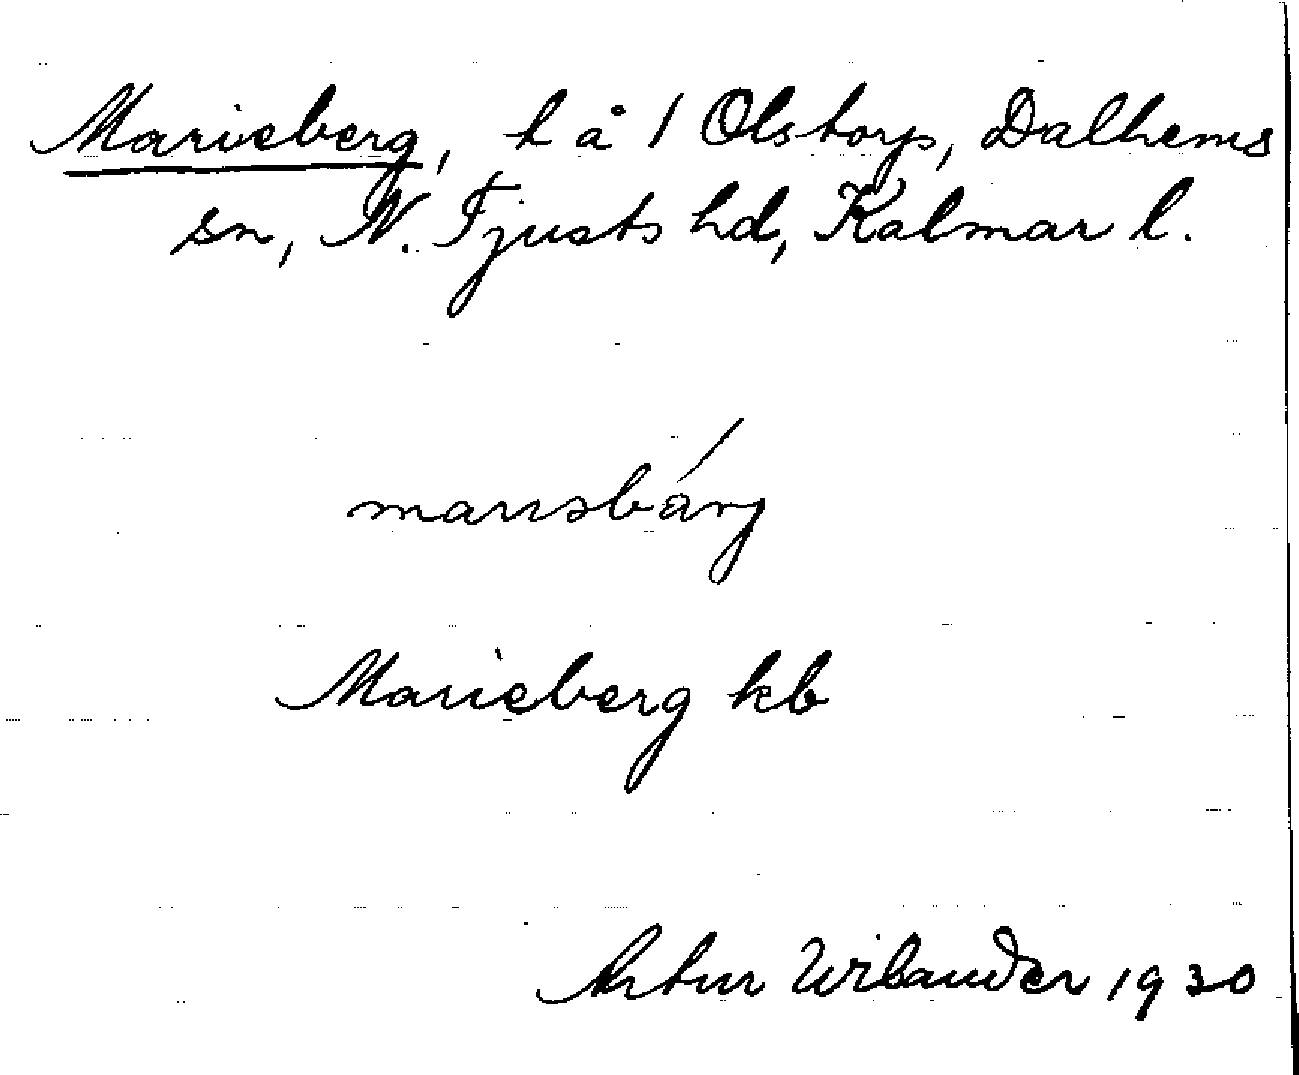 Marieberg, h å 1 Olstorp, Dalhems
sn, N. Tjusts hd, Kalmar l.
marısbárj
Marieberg kb
Artur Wilander 1930